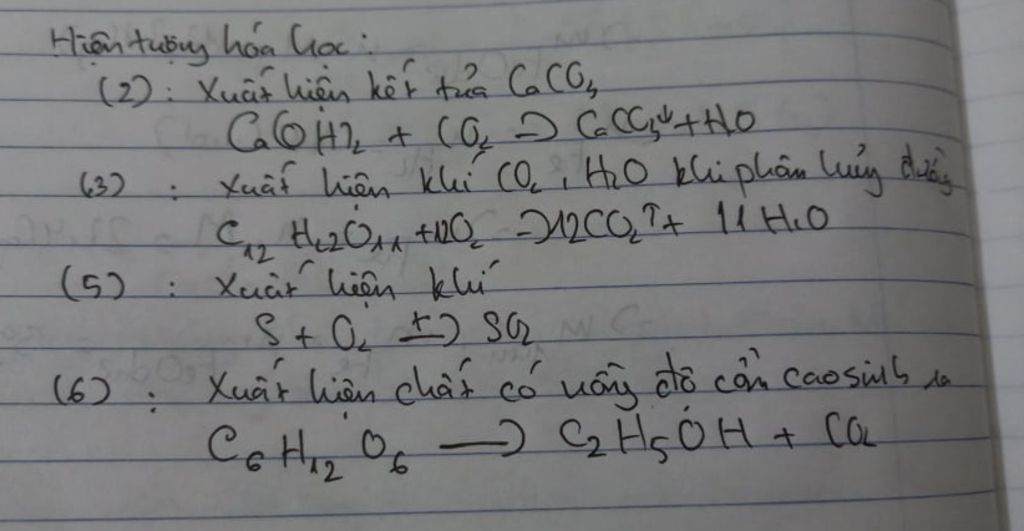 Hiện tượng hóa học:
(2): Xuất hiện kết tủa CaCO3
Ca(OH)2 + CO2 → CaCO3↓ + HO
(3): Xuất hiện khí CO2, H2O khi phân hủy đường
C12 H22O11 + 12O2 → 12CO2↑ + 11 H2O
(5): Xuất hiện khí
S + O2 →t SO2
(6): Xuất hiện chất có nồng độ cồn cao sinh ra
C6H12O6 → C2H5OH + CO2